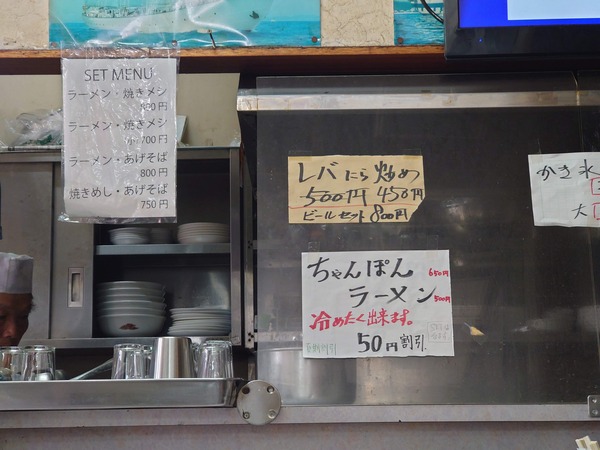 SET MENU
ラーメン・焼きメシ
800円
ラーメン・焼きメシ
小 700円
ラーメン・あげそば
800円
焼きめし・あげそば
750円
レバにら炒め
500円 450円
ビールセット 800円
かき氷
大
ちゃんぽん 650円
ラーメン 500円
冷めたく出来ます。
50円割引